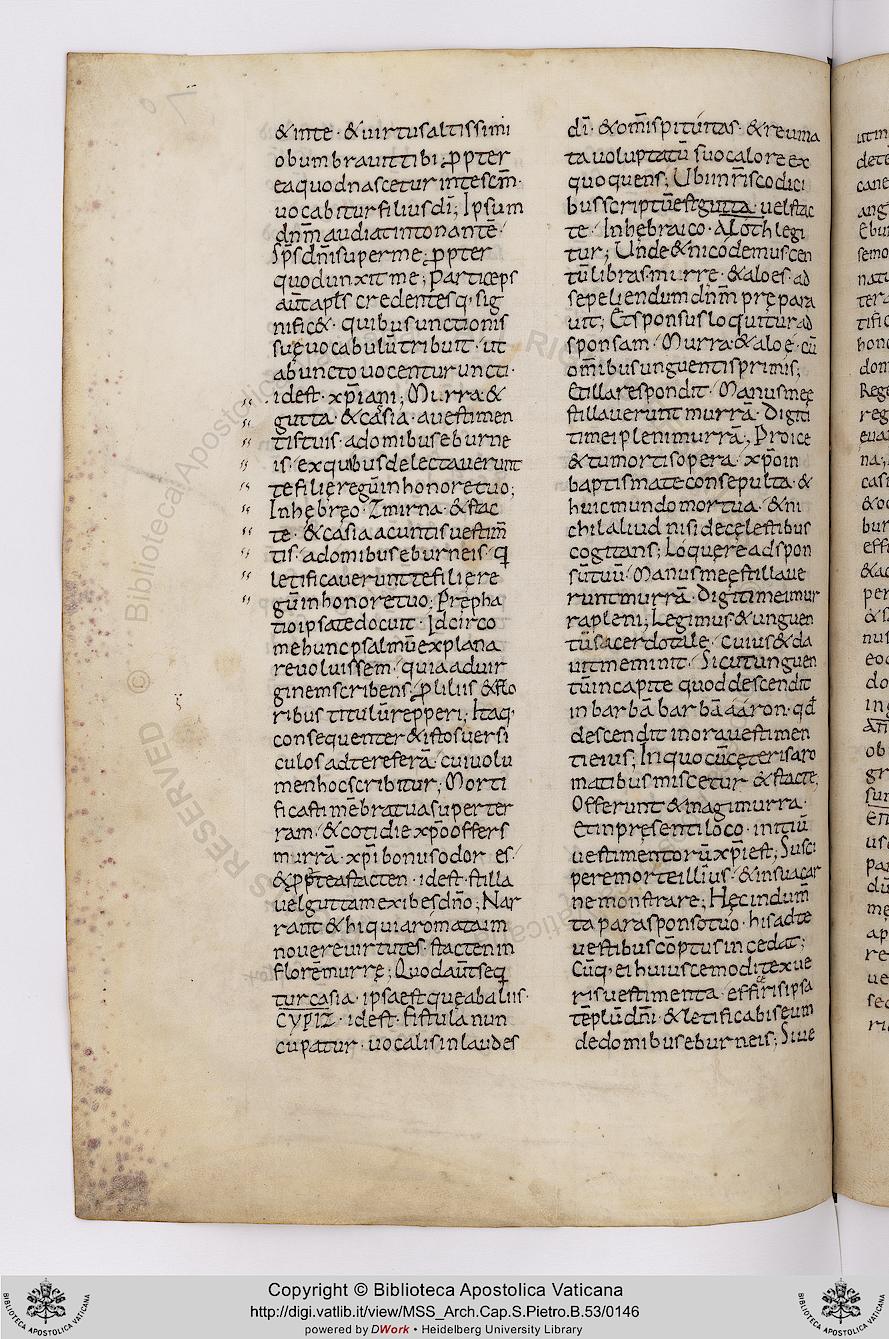 & inte · & uirtus altissimi
obumbrauit tibi; ꝓpter
ea quod nascetur in te scm̄ ·
uocabitur filius dī; Ipsum
dnm̄ audiat intonantē ·
Sp̄s dnī super me; ꝓpter
quod unxit me; Particeps
aūt apl̄s credentesq · sig
nific& · quibus unctionis
suę uocabulū tribuit · ut
ab uncto uocentur uncti ·
idest · xp̄iani; Murra &
gutta · & casia · auestimen
tis tuis · adomibus eburne
is · ex quibus delectauerunt
te filię regū in honore tuo;
In hebręo · Zmirna · & stac
te · & casia a cunctis uestim̄
tis · adomibus eburneis · q̄
letificauerunt te filię re
gū in honore tuo; Prępha
tio ipsa te docuit · Idcirco
me hunc psalmū explana
re uoluissem · quia ad uir
ginem scribens · ꝓ liliis & flo
ribus titulū repperi; Itaq ·
consequenter & istos uersi
culos ad te referā · cui uolu
men hoc scribitur; Morti
ficasti mēbra tua super ter
ram · & cotidie xp̄o offers
murrā · xp̄i bonus odor es ·
& ꝓpterea stacten · idest · stilla
uel guttam exibes dnō; Nar
rant & hi qui aromata im
nouere uirtutes · stacten in
florē murrę; Quod aūt seq̄
tur casia · ipsa est quę ab aliis ·
CYPIZ · idest · fistula nun
cupatur · uocalis in laudes
dī · & om̄is pituitas · & reuma
ta uoluptatū suo calore ex
quoquens; Ubi in nr̄is codici
bus scriptū est gutta · uel stac
te · In hebraico · ALOTH legi
tur; Unde & nicodemus cen
tū libras mirrę · & aloes · ad
sepeliendum dnm̄ prępara
uit; Et sponsus loquitur ad
sponsam · Murra & aloe · cū
om̄ibus unguentis primis;
Et illa respondit · Manus meę
stillauerunt murrā · Digiti
ti mei pleni murrā; Proice
& tu mortis opera · xp̄o in
baptismate consepulta · &
huic mundo mortua · & ni
chil aliud nisi de cęlestibus
cogitans; Loquere ad spon
sū tuū · Manus meę stillaue
runt murrā · Digiti mei mur
ra pleni; Legimus & unguen
tū sacerdotale · cuius & da
uit meminit · Sicut unguen
tū in capite quod descendit
in barbā barbā aaron · qd̄
descendit in ora uestimen
ti eius; In quo cū cęteris aro
matibus miscetur & stacte;
Offerunt & magi murra ·
Et in pręsenti loco · initiū
uestimentorū xp̄i est; Susci
pere morte illius · & in sua car
ne monstrare; Hęc indum̄
ta para sponso tuo · his ad te
uestibus cōptus incedat;
Cūq · ei huiuscemodi texue
ris uestimenta · efficeris ipsa
tēplū dnī · & letificabis eum
de domibus eburneis; Siue
Copyright © Biblioteca Apostolica Vaticana
http://digi.vatlib.it/view/MSS_Arch.Cap.S.Pietro.B.53/0146
powered by DWork • Heidelberg University Library